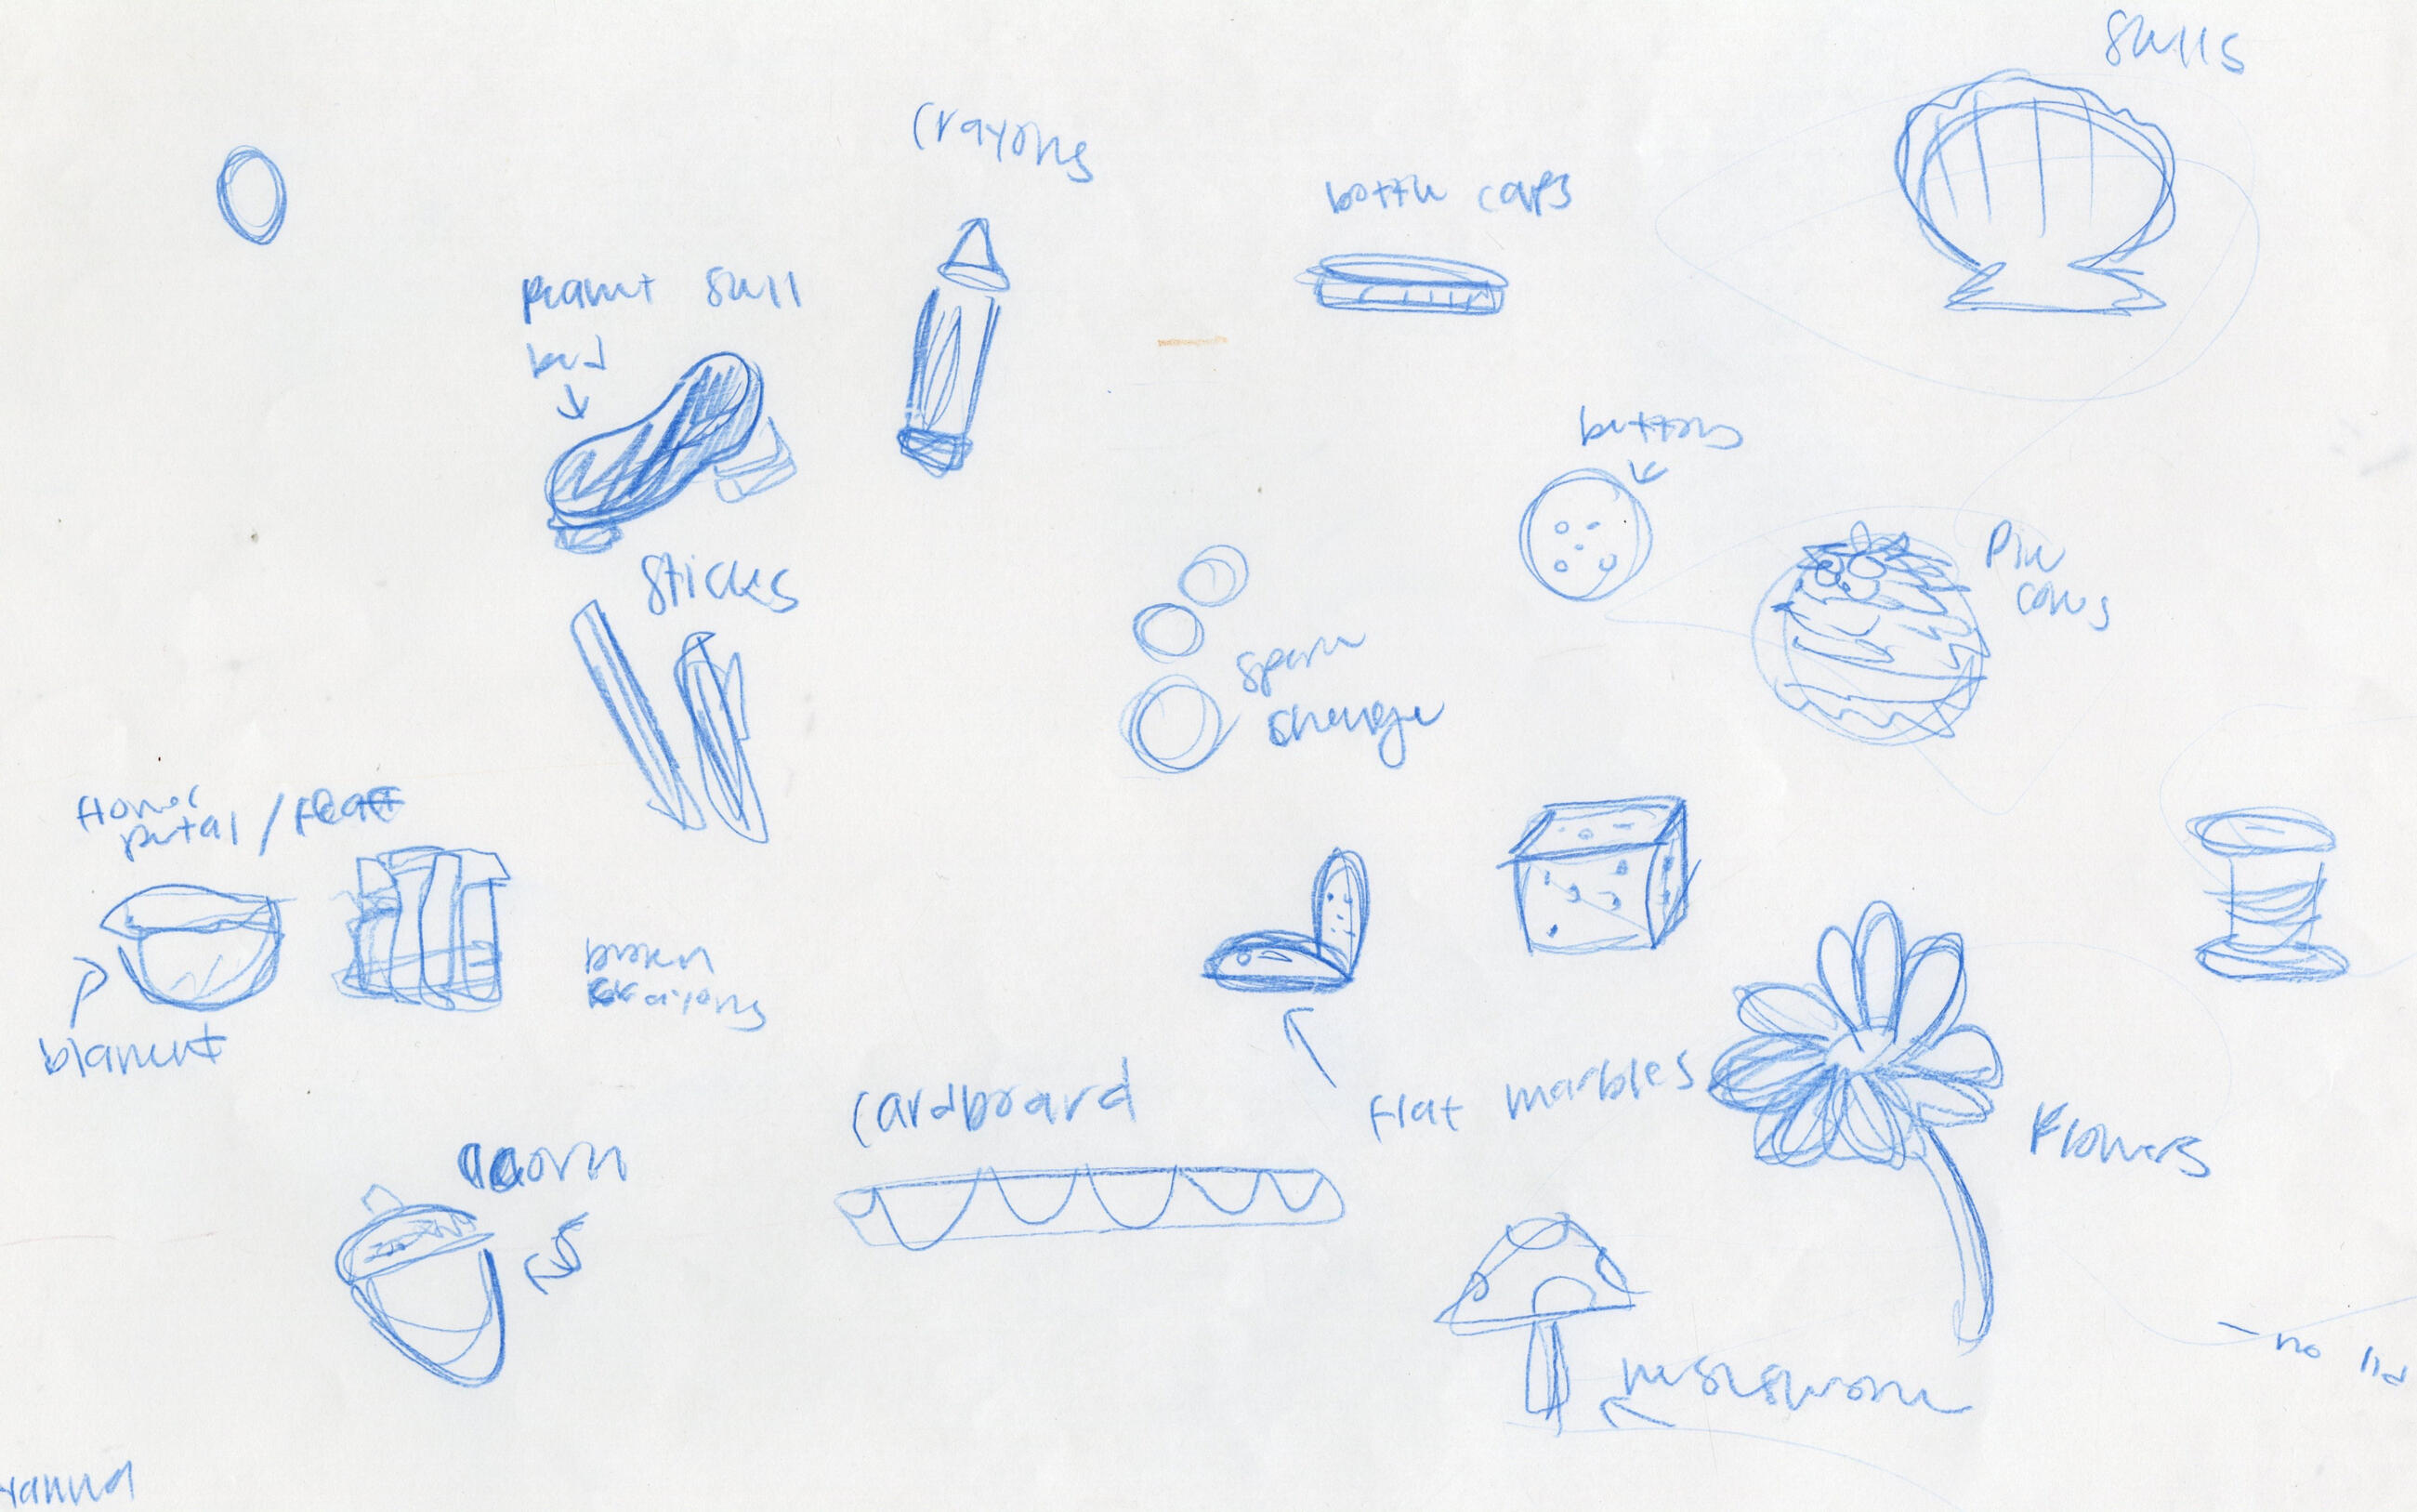 Shells
crayons
bottle caps
peanut shell
bed
buttons
Pine
cones
Sticks
spare
change
flower
petal /
blanket
broken
crayons
cardboard
flat marbles
Flowers
acorn
mushroom
- no lid